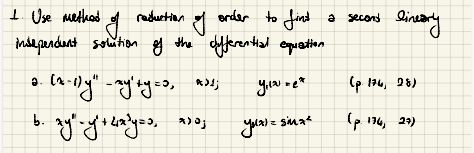 1. Use method of reduction of order to find a second linearly
independent solution of the differential equation
a. (x-1)y'' - xy' + y = 0, x>1; y₁(x) = eˣ (p 174, 28)
b. xy'' - y' + 4x³y = 0, x>0; y₁(x) = sin x² (p 174, 27)